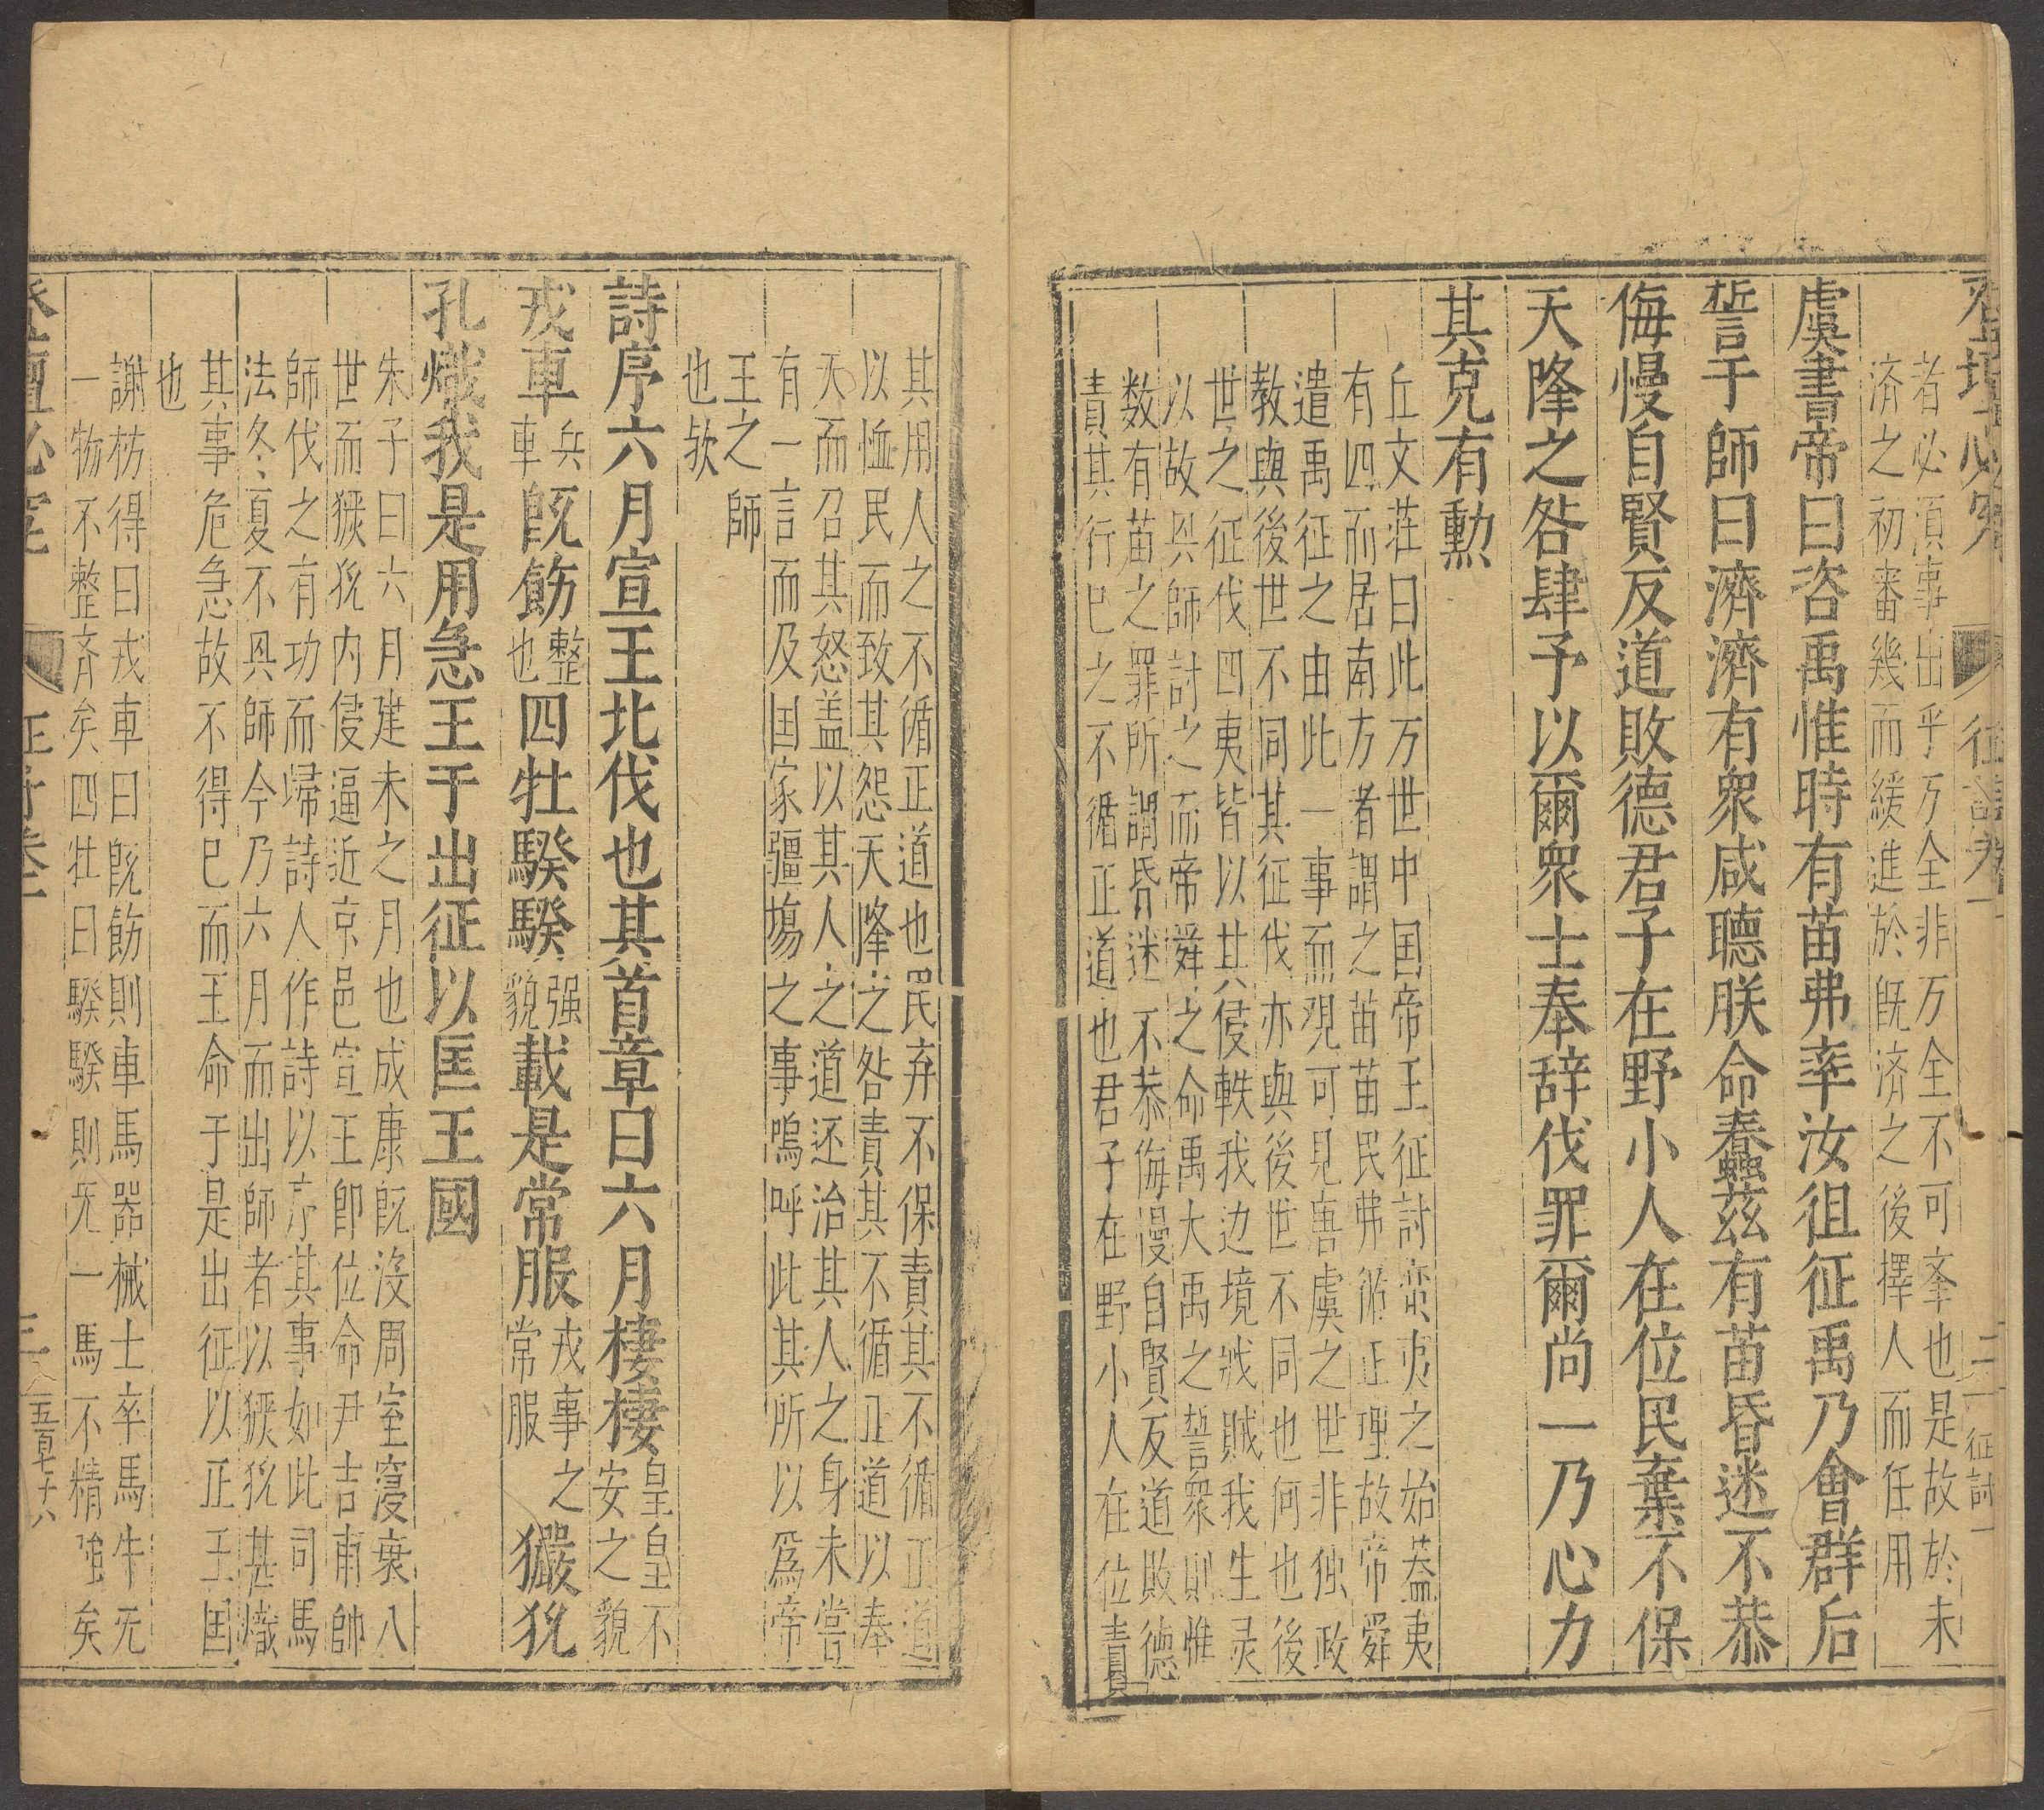 登壇必究
征討卷一
二
征討一
者必須事出乎万全非万全不可本也是故於未
済之初審幾而緩進於既済之後擇人而任用
虞書帝曰咨禹惟時有苗弗率汝徂征禹乃會群后
誓于師曰濟濟有衆咸聽朕命蠢茲有苗昏迷不恭
侮慢自賢反道敗德君子在野小人在位民棄不保
天降之咎肆予以爾衆士奉辞伐罪爾尚一乃心力
其克有勲
丘文荘曰此万世中囯帝王征討蛮夷之始蓋夷
有四而居南方者謂之苗苗民弗循正理故帝舜
遣禹征之由此一事而覌可見唐虞之世非独政
教與後世不同其征伐亦與後世不同也何也後
世之征伐四夷皆以其侵軼我边境戕賊我生灵
以故興師討之而帝舜之命禹大禹之誓衆則惟
数有苗之罪所謂昏迷不恭侮慢自賢反道敗德
責其行已之不循正道也君子在野小人在位責
其用人之不循正道也民弃不保責其不循正道
以恤民而致其怨天降之咎責其不循正道以奉
天而召其怒盖以其人之道还治其人之身未嘗
有一言而及囯家疆埸之事嗚呼此其所以爲帝
王之師
也欤
詩序六月宣王北伐也其首章曰六月棲棲皇皇不安之貌
戎車兵車既飭整也四牡騤騤强貌載是常服戎事之常服玁狁
孔熾我是用急王于出征以匡王國
朱子曰六月建未之月也成康既沒周室寖衰八
世而玁狁内侵逼近京邑宣王即位命尹吉甫帥
師伐之有功而帰詩人作詩以序其事如此司馬
法冬夏不興師今乃六月而出師者以玁狁甚熾
其事危急故不得已而王命于是出征以正王囯
也
謝枋得曰戎車曰既飭則車馬器械士卒馬牛无
一物不整斉矣四牡曰騤騤則无一馬不精强矣
登壇必究
征討卷一
三
五百六